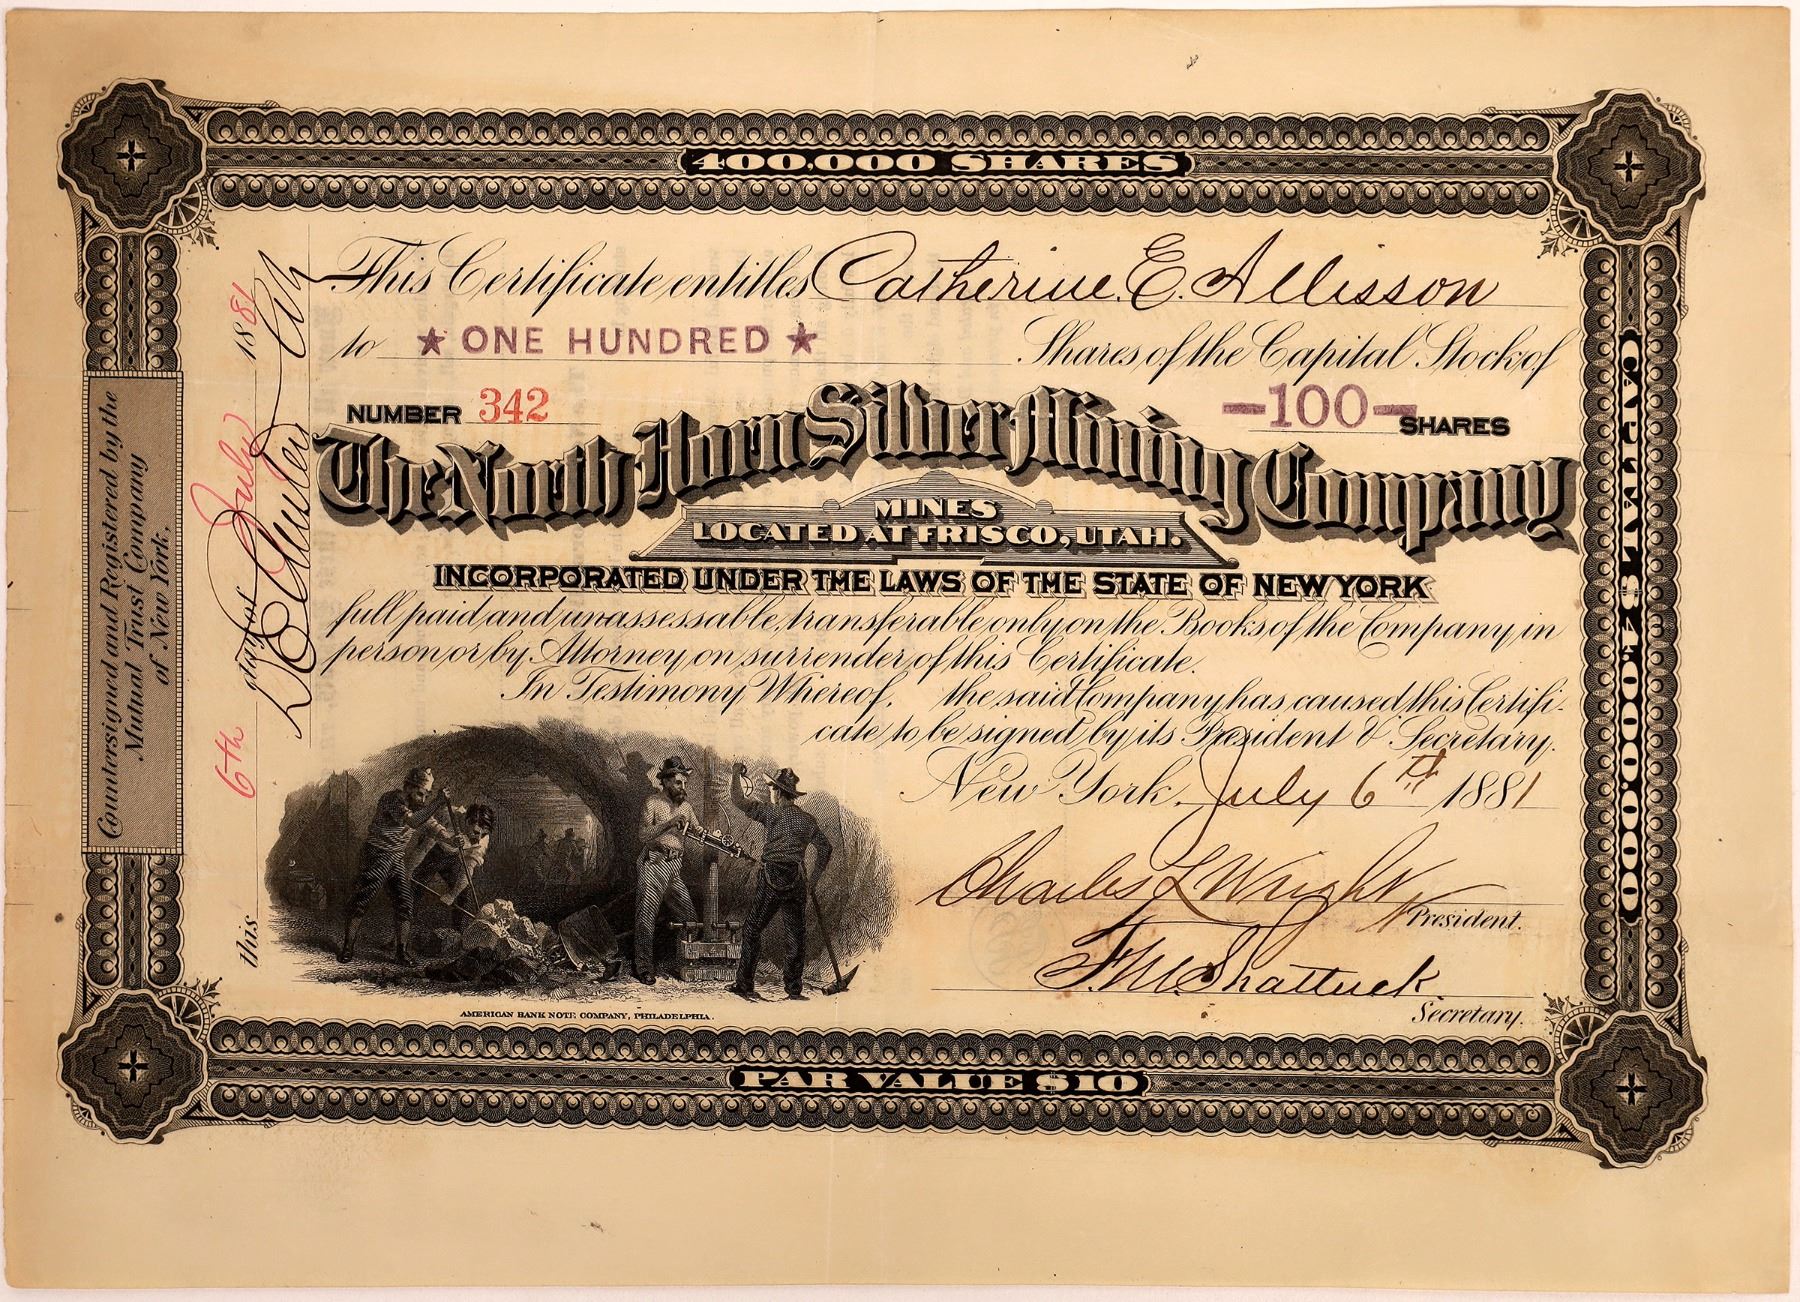 400,000 SHARES
This Certificate entitles Catherine E. Allisson
to ★ ONE HUNDRED ★ Shares of the Capital Stock of
NUMBER 342 -100- SHARES
The North Horn Silver Mining Company
MINES
LOCATED AT FRISCO, UTAH.
INCORPORATED UNDER THE LAWS OF THE STATE OF NEW YORK
full paid and unassessable, transferable only on the Books of the Company in
person or by Attorney on surrender of this Certificate.
In Testimony Whereof, the said Company has caused this Certifi-
cate to be signed by its President & Secretary.
New York, July 6th 1881
Charles L Wright
President.
F. M. Shattuck
Secretary.
AMERICAN BANK NOTE COMPANY, PHILADELPHIA.
PAR VALUE $10
CAPITAL $4,000,000
Countersigned and Registered by the
Mutual Trust Company
of New York.
this 6th day of July 1881